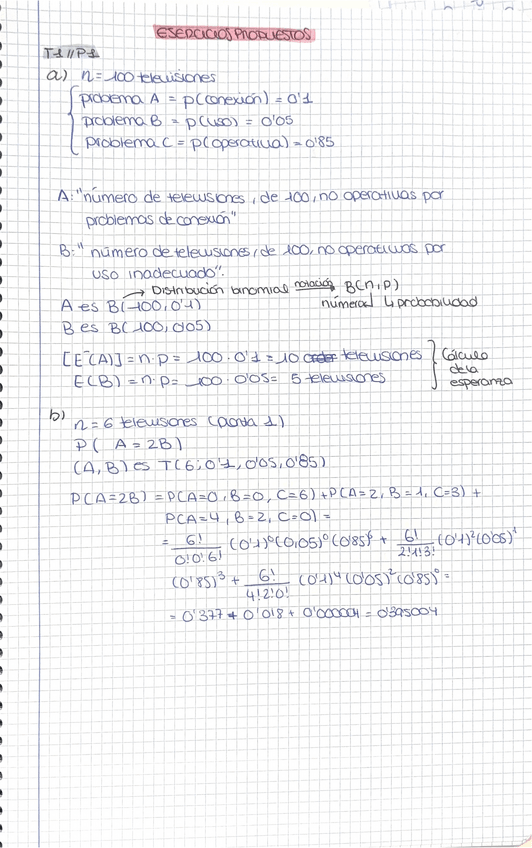 EJERCICIOS PROPUESTOS
T1//P1
a) n = 100 televisiones
problema A = p(conexión) = 0'1
problema B = p(uso) = 0'05
problema C = p(operativa) = 0'85
A: "número de televisiones, de 100, no operativas por
problemas de conexión"
B: "número de televisiones, de 100, no operativas por
uso inadecuado".
→ Distribución binomial notación B(n,p)
A es B(100, 0'1) número ↲ ↳ probabilidad
B es B(100, 0'05)
[E(A)] = n·p = 100·0'1 = 10 televisiones } Cálculo
E(B) = n·p = 100·0'05 = 5 televisiones de la
esperanza
b) n = 6 televisiones (planta 1)
P( A = 2B)
(A, B) es T(6; 0'1, 0'05, 0'85)
P(A=2B) = P(A=0, B=0, C=6) + P(A=2, B=1, C=3) +
P(A=4, B=2, C=0) =
= 6!/0!0!6! (0'1)⁰(0,05)⁰(0'85)⁶ + 6!/2!1!3! (0'1)²(0'05)¹
(0'85)³ + 6!/4!2!0! (0'1)⁴(0'05)²(0'85)⁰ =
= 0'377 + 0'018 + 0'000004 = 0'395004